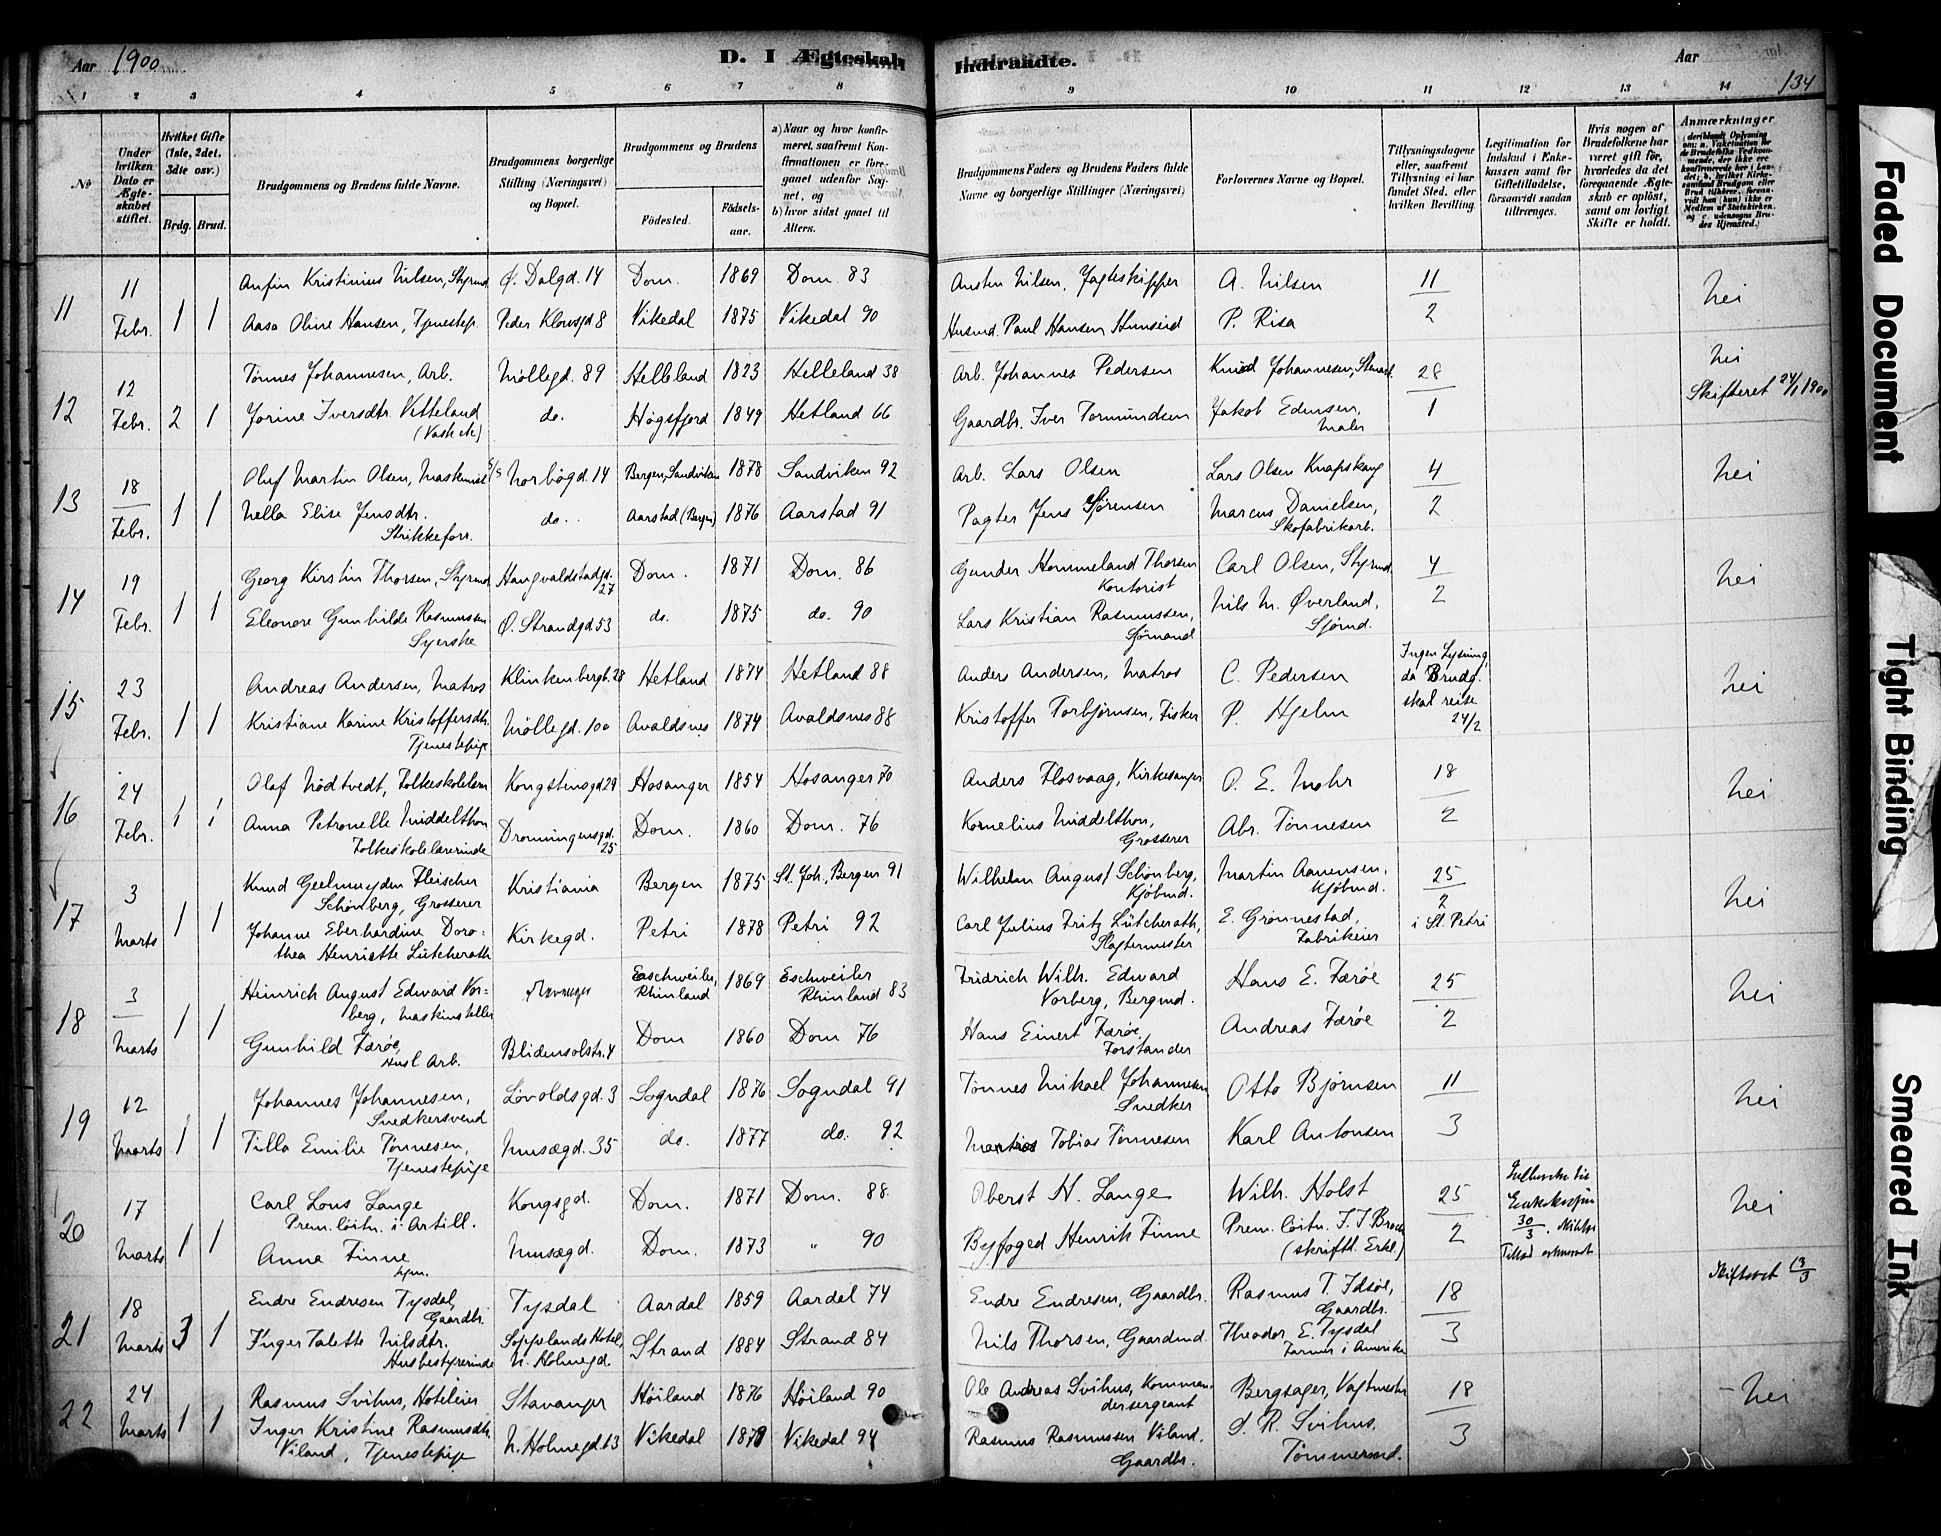 Aar 1900
D. I Ægteskab
Indtraadte.
Aar
134
1 2 3 4 5 6 7 8 9 10 11 12 13 14
№
Under hvilken Dato er Ægteskabet stiftet.
Hvilket Gifte (1ste, 2det, 3die osv.)
Brdg. Brud.
Brudgommens og Brudens fulde Navne.
Brudgommens borgerlige Stilling (Næringsvei) og Bopæl.
Brudgommens og Brudens
Födested.
Födsels-aar.
a) Naar og hvor konfirmeret, saafremt Konfirmationen er foregaaet udenfor Sognet, og
b) hvor sidst gaaet til Alters.
Brudgommens Faders og Brudens Faders fulde Navne og borgerlige Stillinger (Næringsvei)
Forlovernes Navne og Bopæl.
Tillysningsdagene eller, saafremt Tillysning ei har fundet Sted, efter hvilken Bevilling.
Legitimation for Indskud i Enkekassen samt for Giftetilladelse, forsaavidt saadan tiltrænges.
Hvis nogen af Brudefolkene har været gift før, hvorledes da det foregaaende Ægteskab er oplöst, samt om lovligt Skifte er holdt.
Anmærkninger
11
11 Febr. 1 1
Anfin Kristinius Nilsen, Styrmd. Ø. Dalgd. 14 Dom. 1869 Dom. 83 Austen Nilsen, Jagteskipper A. Nilsen 11/2 Nei
Aasa Oline Hansen, Tjenestep. Peder Klowsgd 8 Vikedal 1875 Vikedal 90 Husmd. Paul Hansen P. Risa
12
12 Febr. 2 1
Tönnes Johannesen, Arb. Möllegd. 89 Helleland 1823 Helleland 38 Arb. Johannes Pedersen Knud Johannesen, 28/1 Nei
Skifteret 24/1 1900
Jorine Iversdtr. Vetteland do. Høgsfjord 1849 Hetland 66 Gaardbr. Iver Tormundsen Jakob Edensen, Maler
13
18 Febr. 1 1
Oluf Martin Olsen, Maskinist Norbögd. 14 Bergen, Sandviken 1878 Sandviken 92 Arb. Lars Olsen Lars Olsen 4/2 Nei
Nella Elise Jensdtr. do. Aarstad (Bergen) 1876 Aarstad 91 Pagter Jens Sørensen Marcus Danielsen,
Strikkeforr. Skofabrikarb.
14
19 Febr. 1 1
Georg Kirstin Thorsen, Styrmd. Haugvaldstadgd. 27 Dom. 1871 Dom. 86 Gunder Hommeland Thorsen Kontorist Carl Olsen, Styrmd. 4/2 Nei
Eleonore Gunhilde Rasmussen Ø. Strandgd 53 do. 1875 do. 90 Lars Kristian Rasmussen, Sjömand Nils M. Øverland, Sjömd.
Syerske
15
23 Febr. 1 1
Andreas Andersen, Matros Klinkenbergb. 28 Hetland 1874 Hetland 88 Anders Andersen, Matros C. Pedersen
Ingen Lysning, da Brudg. skal reise 24/2 Nei
Kristiane Karine Kristoffersdtr. Möllegd. 100 Avaldsnes 1874 Avaldsnes 88 Kristoffer Torbjørnsen, Fisker P. Hjelm
Tjenestepige
16
24 Febr. 1 1
Olaf Nödtvedt, Folkeskolelærer Kongstensgd 29 Hosanger 1854 Hosanger 70 Anders Flosvaag, Kirkesanger O. E. Mohr 18/2 Nei
Anna Petronelle Middelthon Dronningensgd. 25 Dom. 1860 Dom. 76 Kornelius Middelthon, Grosserer Abr. Tönnesen
Folkeskolelærerinde
17
3 Marts 1 1
Knud Geelmuyden Fleischer Kristiania Bergen 1875 St. Joh., Bergen 91 Wilhelm August Schönberg, Kjöbmd. Martin Aanensen, Kjöbmd. 25/2 i St. Petri Nei
Schönberg, Grosserer
Johanne Eberhardine Doro- Kirkegd. Petri 1878 Petri 92 Carl Julius Fritz Lütcherath, Slagtermester E. Grönnestad, Fabrikeier
thea Henriette Lütcherath
18
3 Marts 1 1
Heinrich August Edward Vor- Eschweiler, Rhinland 1869 Eschweiler Rhinland 83 Fridrich Wilh. Edward Vorberg, Bergmd. Hans E. Færöe 25/2 Nei
berg,
Gunhild Færöe, Blidensolstr. 4 Dom 1860 Dom 76 Hans Einert Færöe, Forstander Andreas Færöe
Husl. Arb.
19
12 Marts 1 1
Johannes Johannesen, Lövoldsgd. 3 Sogndal 1876 Sogndal 91 Tönnes Mikael Johannesen Snedker Otto Björnsen 11/3 Nei
Snedkersvend
Tilla Emilie Tönnesen, Musægd. 35 do. 1877 do. 92 Tobias Tönnesen Karl Antonsen
Tjenestepige
20
17 Marts 1 1
Carl Lous Lange Kongsgd. Dom. 1871 Dom. 88 Oberst H. Lange Wilh. Holst 25/2 30/3 Nei
Prem. löitn. i Artill.
Anna Finne Musægd. Dom. 1873 " 90 Byfoged Henrik Finne Prem. löitn. (skriftl. Erkl.)
hjm.
21
18 Marts 3 1
Endre Endresen Tysdal, Tysdal Aardal 1859 Aardal 74 Endre Endresen, Gaardbr. Rasmus T. Idsöe, Gaardbr. 18/3 Skifteret 13/3
Gaardbr.
Inger Talette Nilsdtr. Soppelands Hotel, N. Holmegd. Strand 1884 Strand 84 Nils Thorsen, Gaardmd. Theodor E. Tysdal Farmer i Amerika
Husbestyrerinde
22
24 Marts 1 1
Rasmus Svihus, Hoteleier Stavanger Höiland 1876 Höiland 90 Ole Andreas Svihus, Kommandersergeant Bergsager, Vagtmester 18/3 Nei
Inger Kristine Rasmusdtr. N. Holmegd 63 Vikedal Vikedal 94 Rasmus Rasmussen Viland, Gaardbr. S. R. Svihus, Tömmermd.
Viland, Tjenestepige
Faded Document
Tight Binding
Smeared Ink